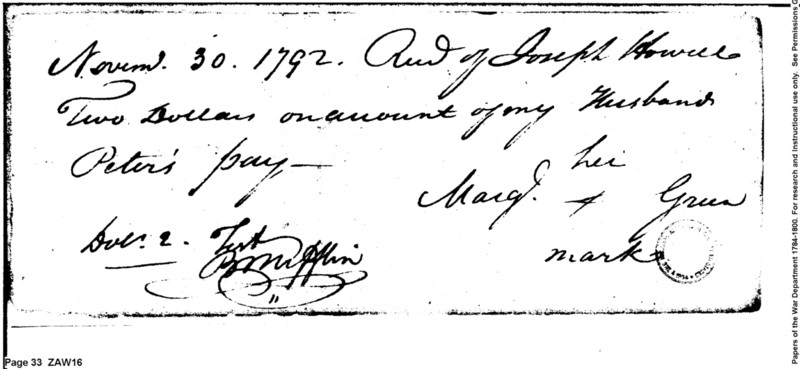 Novem. 30. 1792. Recd of Joseph Howell
Two Dollars on account of my Husband
Peter's pay—
her
Margt. + Green
mark
Dolls. 2. Test
B Mifflin
Page 33 ZAW16
Papers of the War Department 1784-1800. For research and instructional use only. See Permissions